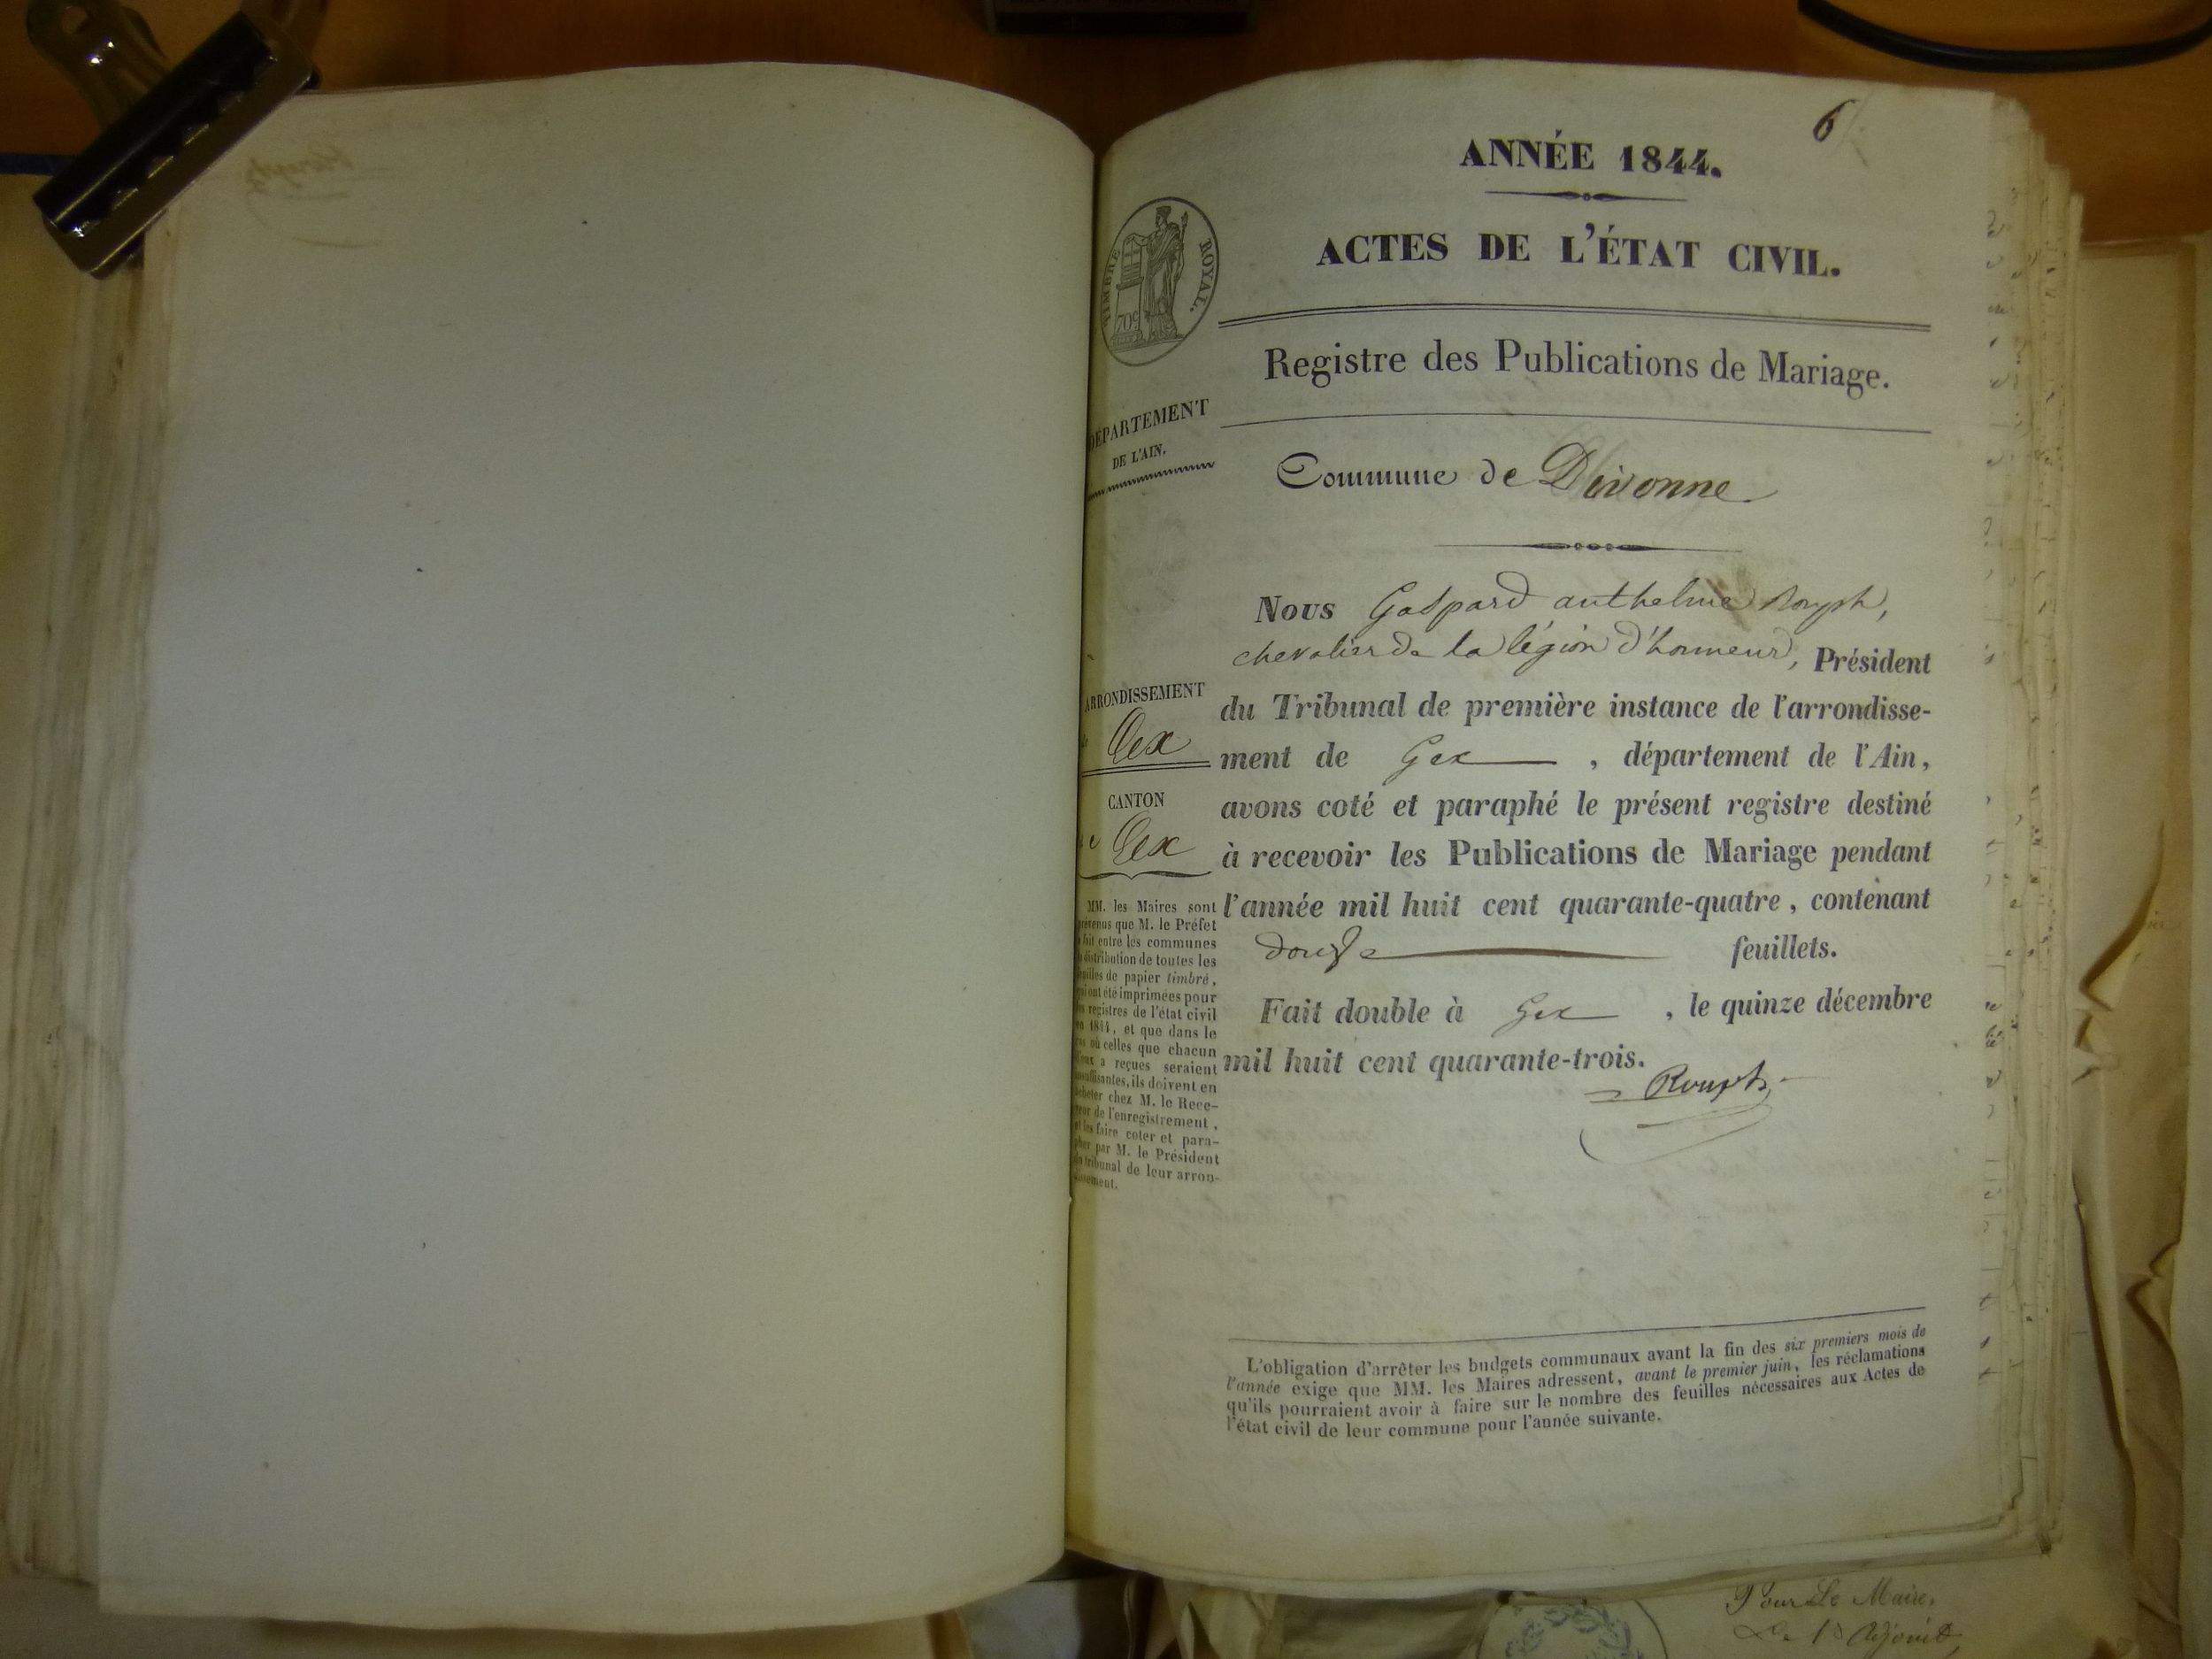 6
ANNÉE 1844.
ACTES DE L'ÉTAT CIVIL.
TIMBRE ROYAL.
70c
Registre des Publications de Mariage.
DÉPARTEMENT
DE L'AIN.
Commune de Divonne
Nous Gaspard anthelme Rouph,
chevalier de la légion d'honneur, Président
du Tribunal de première instance de l'arrondisse-
ment de Gex, département de l'Ain,
avons coté et paraphé le présent registre destiné
à recevoir les Publications de Mariage pendant
l'année mil huit cent quarante-quatre, contenant
douze feuillets.
Fait double à Gex, le quinze décembre
mil huit cent quarante-trois.
Rouph
ARRONDISSEMENT
Gex
CANTON
de Gex
MM. les Maires sont
prévenus que M. le Préfet
a fait entre les communes
la distribution de toutes les
feuilles de papier timbré,
qui ont été imprimées pour
les registres de l'état civil
en 1844, et que dans le
cas où celles que chacun
d'eux a reçues seraient
insuffisantes, ils doivent en
acheter chez M. le Rece-
veur de l'enregistrement,
et les faire coter et para-
pher par M. le Président
du tribunal de leur arron-
dissement.
L'obligation d'arrêter les budgets communaux avant la fin des six premiers mois de
l'année exige que MM. les Maires adressent, avant le premier juin, les réclamations
qu'ils pourraient avoir à faire sur le nombre des feuilles nécessaires aux Actes de
l'état civil de leur commune pour l'année suivante.
Pour Le Maire,
Le 1er Adjoint,